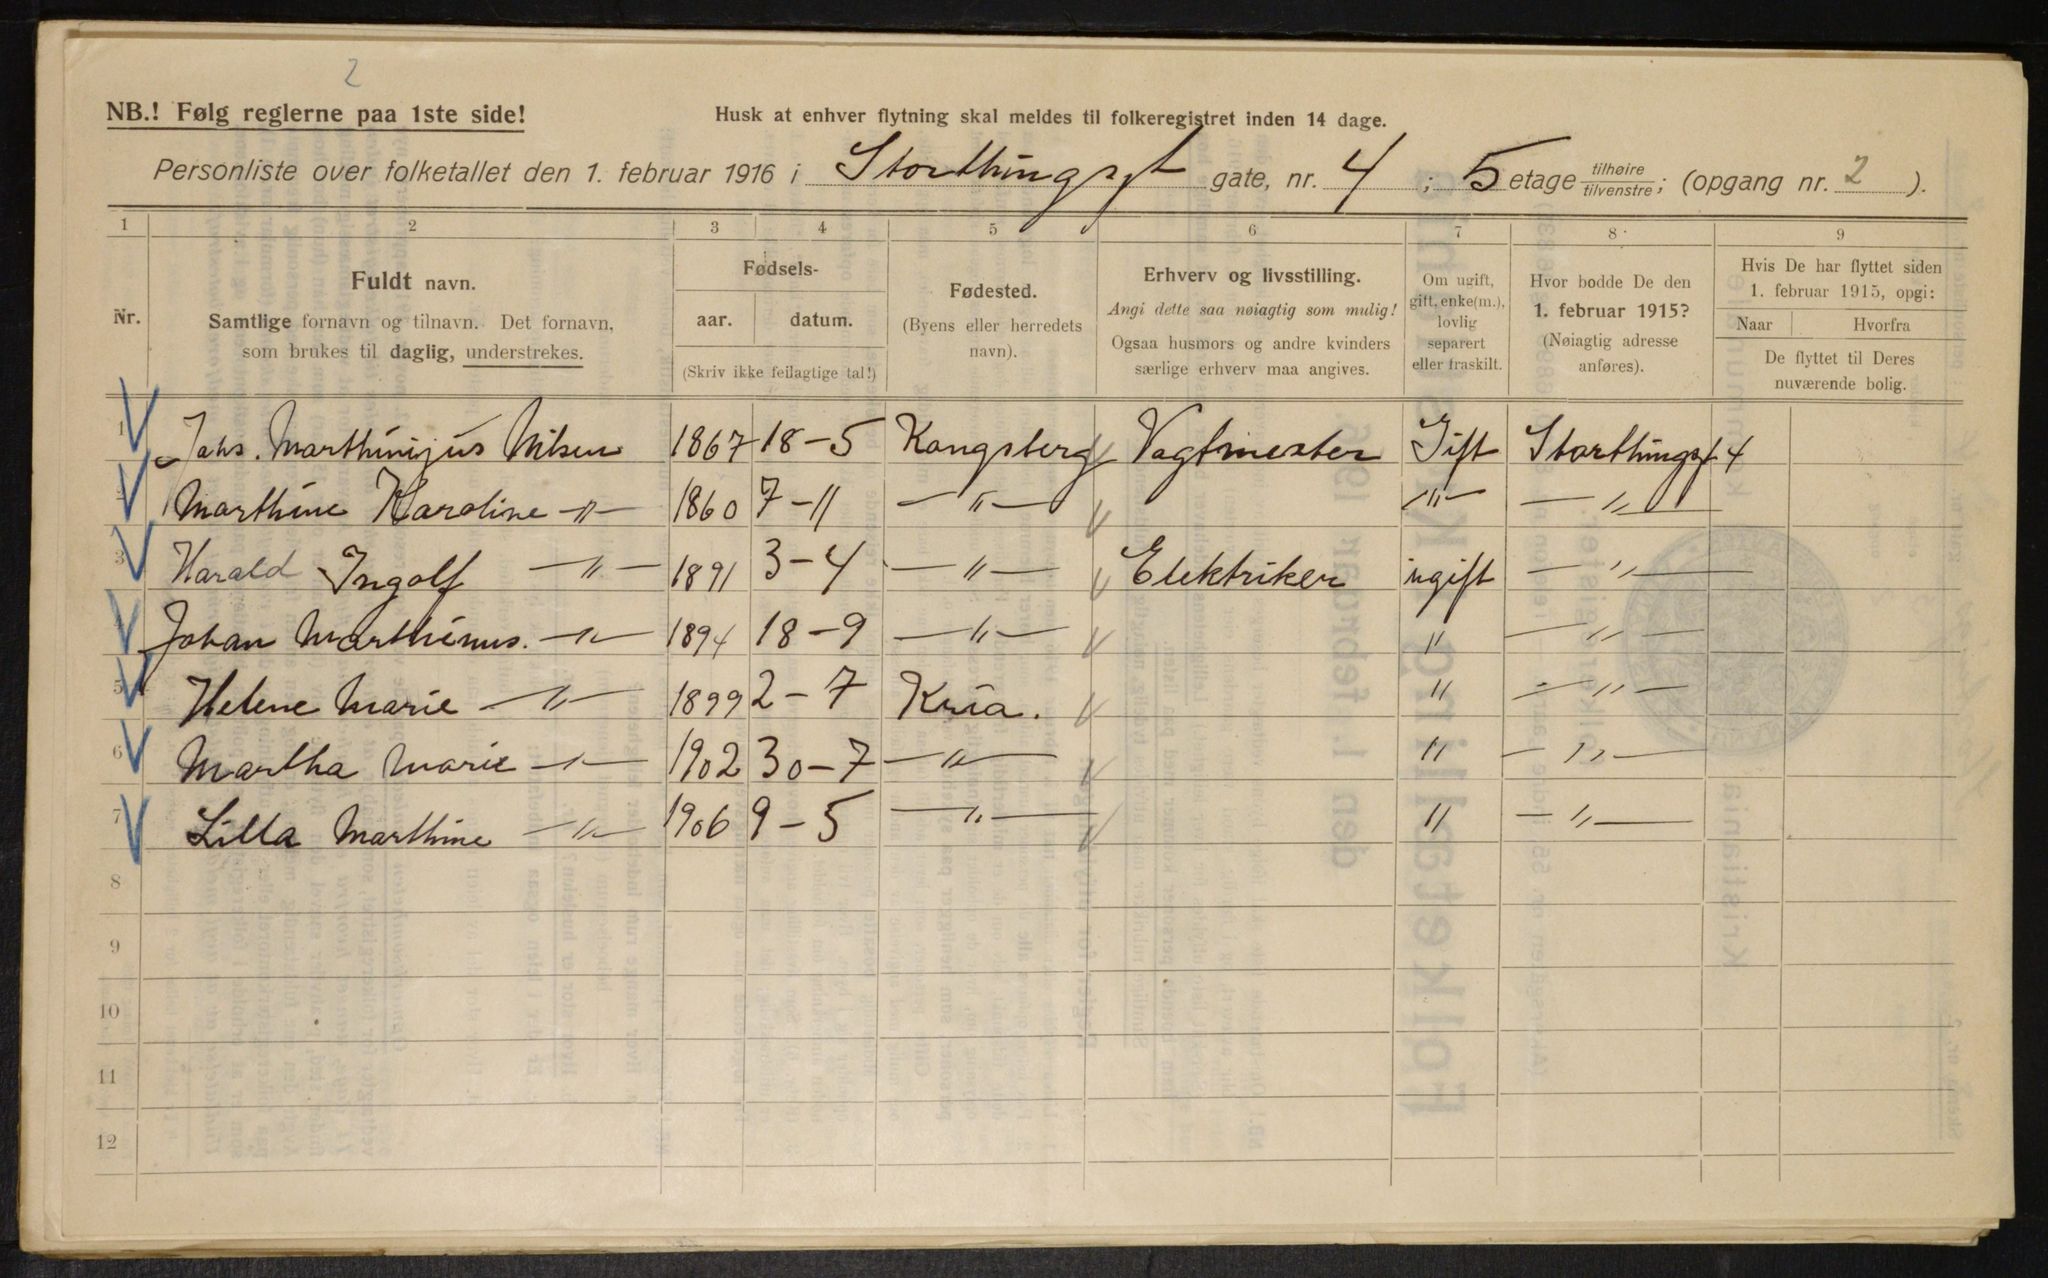 2
NB.! Følg reglerne paa 1ste side!
Husk at enhver flytning skal meldes til folkeregistret inden 14 dage.
Personliste over folketallet den 1. februar 1916 i Storthingsgt gate, nr. 4 ; 5 etage tilhøire tilvenstre; (opgang nr. 2 ).
1 2 3 4 5 6 7 8 9
Nr.
Fuldt navn.
Samtlige fornavn og tilnavn. Det fornavn,
som brukes til daglig, understrekes.
Fødsels-
aar. datum.
(Skriv ikke feilagtige tal!)
Fødested.
(Byens eller herredets
navn).
Erhverv og livsstilling.
Angi dette saa nøiagtig som mulig!
Ogsaa husmors og andre kvinders
særlige erhverv maa angives.
Om ugift,
gift, enke(m.),
lovlig
separert
eller fraskilt.
Hvor bodde De den
1. februar 1915?
(Nøiagtig adresse
anføres).
Hvis De har flyttet siden
1. februar 1915, opgi:
Naar Hvorfra
De flyttet til Deres
nuværende bolig.
1 Johs. Marthinijus Nilsen 1867 18-5 Kongsberg Vagtmester Gift Storthingsgt 4
2 Marthine Karoline —"— 1860 7-11 —"— —"— —"—
3 Harald Ingolf —"— 1891 3-4 —"— Elektriker ugift —"—
4 Johan Marthinus. —"— 1894 18-9 —"— " —"—
5 Helene Marie —"— 1899 2-7 Kria. " —"—
6 Martha Marie —"— 1902 30-7 —"— " —"—
7 Lilla Marthine —"— 1906 9-5 —"— " —"—
8
9
10
11
12